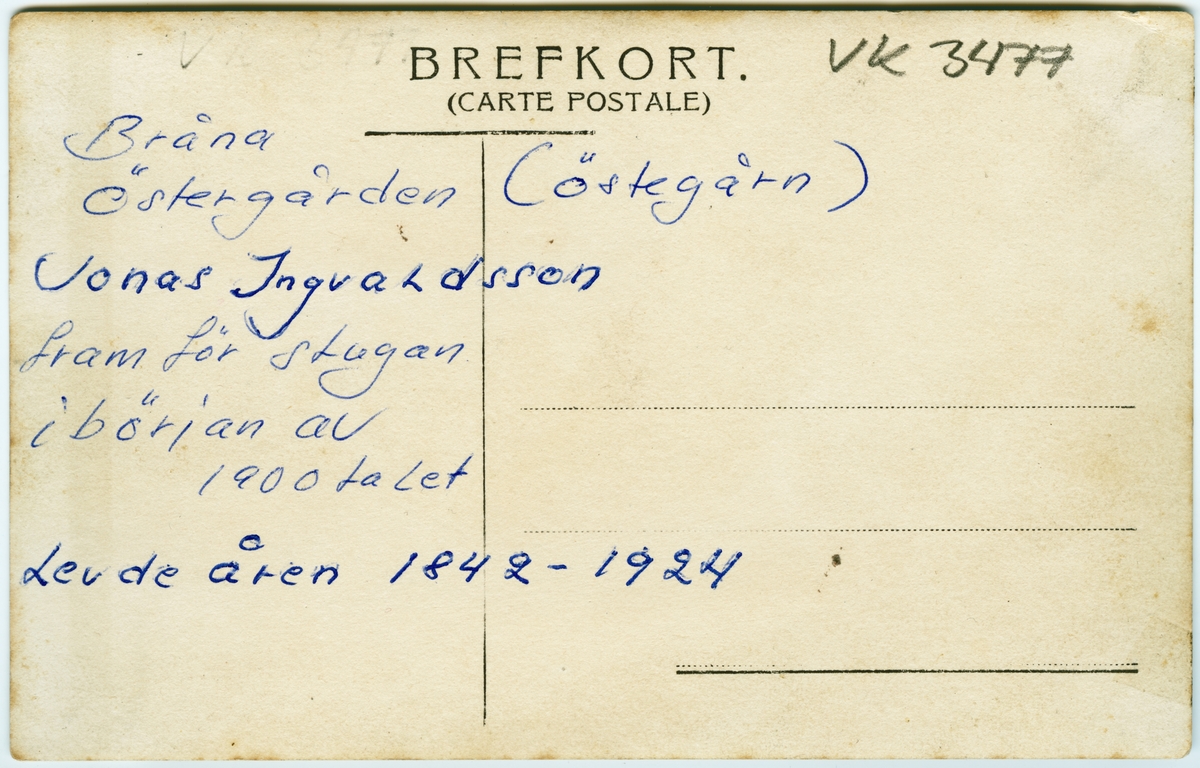 BREFKORT.
(CARTE POSTALE)
VK 3477
Bråna
Östergården (östegårn)
Jonas Ingvaldsson
fram för stugan
i början av
1900 talet
Levde åren 1842-1924